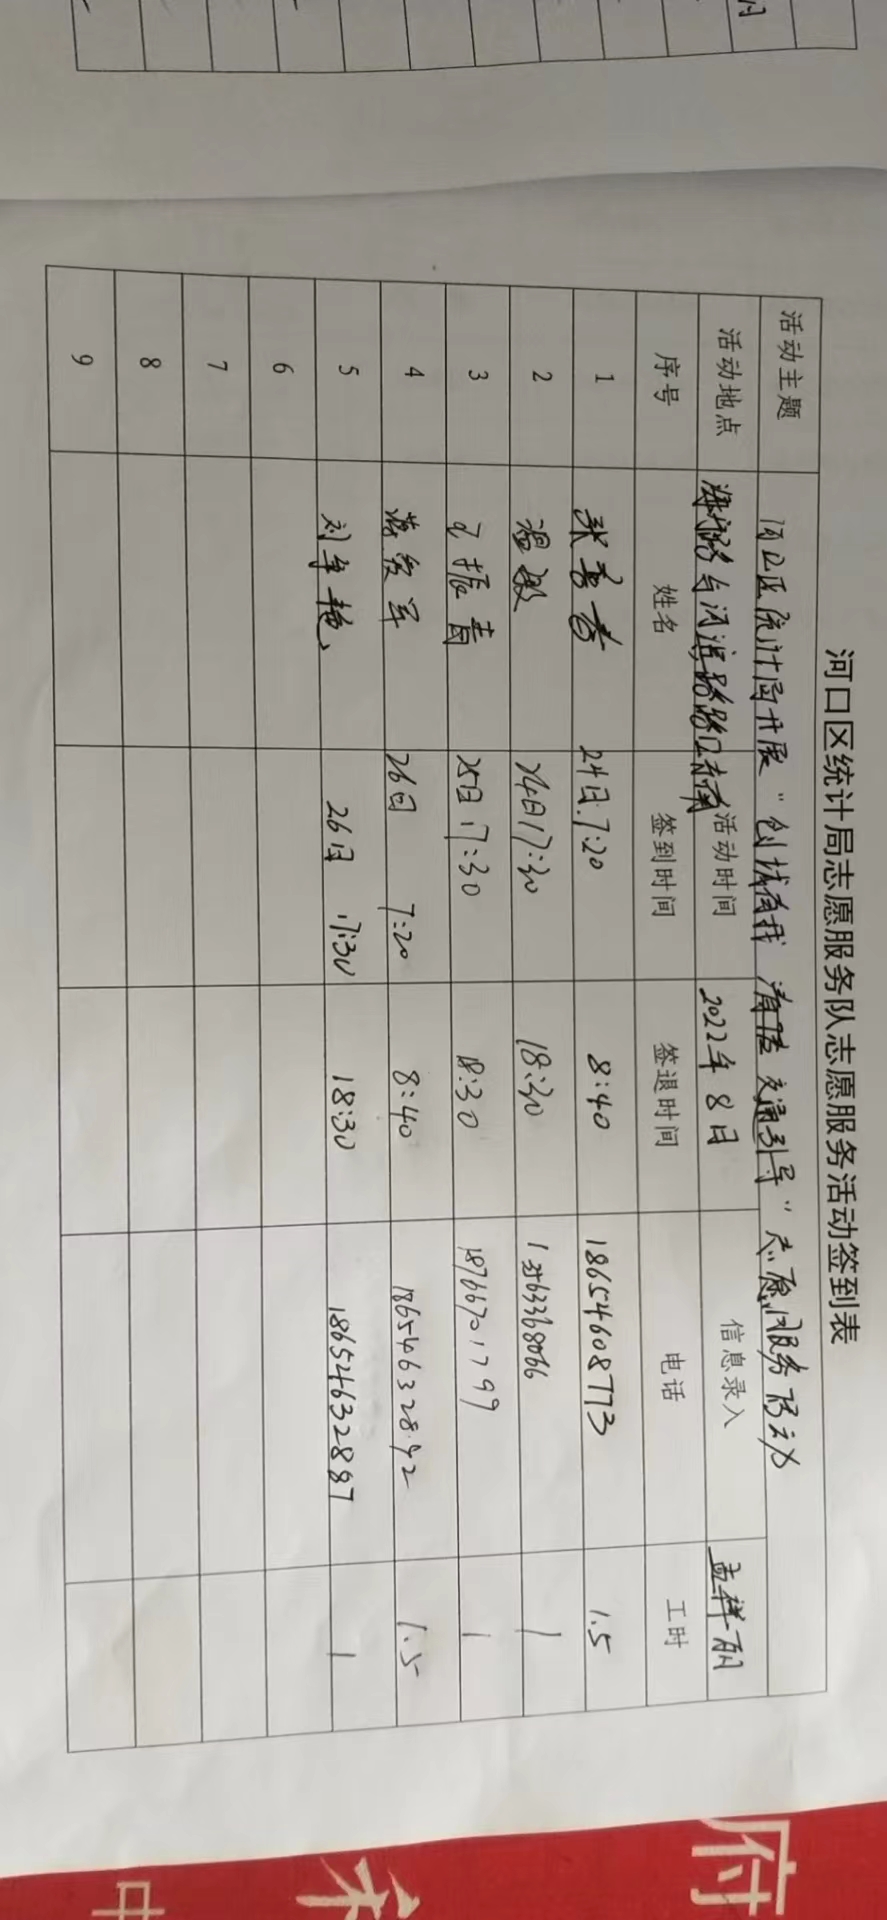 河口区统计局志愿服务队志愿服务活动签到表
活动主题 河口区统计局开展"创城有我 清除交通引导"志愿服务活动
活动地点 海宁路与河滨路路口东南 活动时间 2022年8日 信息录入 孟祥丽
序号 姓名 签到时间 签退时间 电话 工时
1 24日 7:20 8:40 18654608773 1.5
2 温敏 24日17:30 18:30 1
3 振青 25日 17:30 18:30 18766701799 1
4 26日 7:20 8:40 18654632892 1.5
5 刘军艳 26日 17:30 18:30 18654632887 1
6
7
8
9
府
中